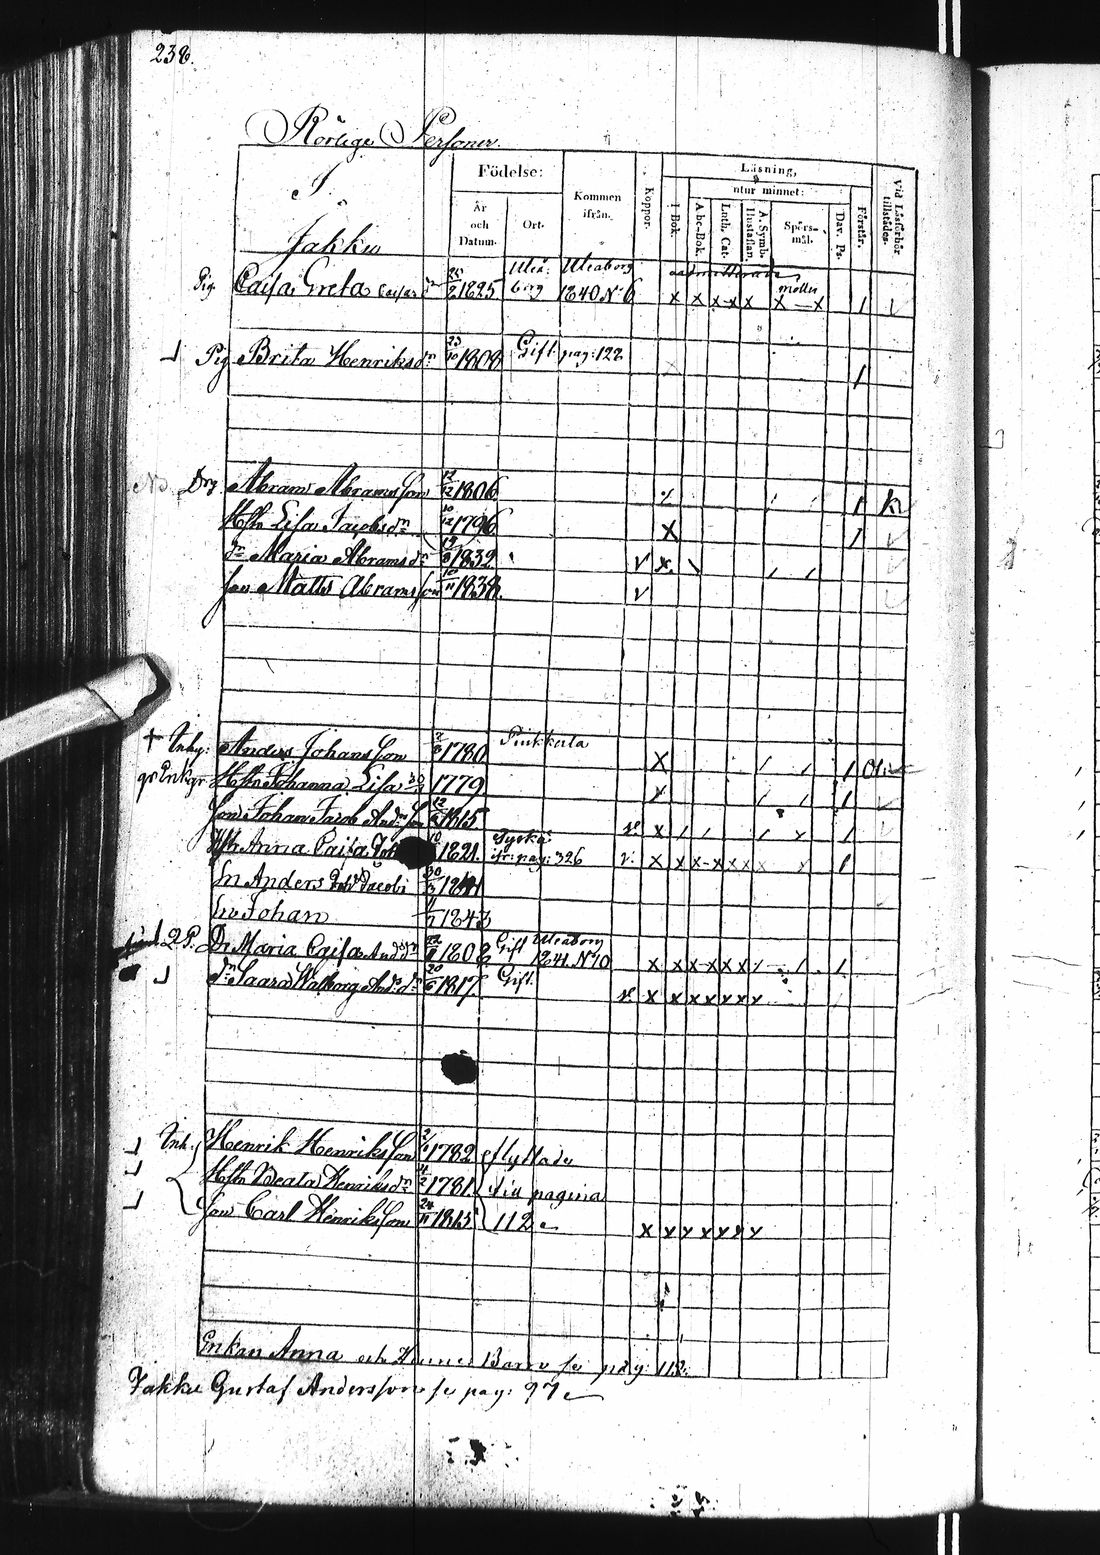 238.
Rörlige Personer.
Födelse:
Läsning,
I
Jakku
År och Datum.
Ort.
Kommen ifrån.
Koppor.
I Bok.
utur minnet:
Abc-Bok.
Luth. Cat.
A. Symb. Hustaflan.
Spörs-mål.
Dav. Ps.
Förstår.
Vid Läsförhör tillstädes.
Pig Caisa Greta Caisas dr 25/2 1825 Uleå: borg Uleaborg 1840 No 6 x x x x x x — x 1
Pig Brita Henriksdr 23/10 1808 Gift pag: 122 1
Drg Abram Abramsson 17/12 1806
Hstr Lisa Jacobsdr 10/12 1796 x 1
dr Maria Abramsdr 19/8 1832 v x
son Matts Abramsson 10/11 1838 v
† Inhy: Anders Johansson 2/8 1780 Pinkkerla x 1
Enkgr Hstr Johanna Lisa 1779 x 1
Son Johan Jacob Andrs Son 12/2 1815 x 1
Hstr Anna Caisa 1821 fr: pag: 326 v x x x x x x x 1
Sn Anders Jacobi 30/3 1841
Sn Johan 1843
Dr Maria Caisa Andsdr 22/ 1808 Gift Uleaborg 1841 No 10 x x x x x x 1
dr Saara Walborg Ands dr 20/ 1817 Gift. x x x x x x x
Inh. Henrik Henriksson 1782 flyttade
Hstr Beata Henriksdr 1781 sid pagina
Son Carl Henriksson 24/11 1815 112. x x x x x x x
Enkan Anna och Barn se pag: 112.
Jakku Gustaf Andersson se pag: 97